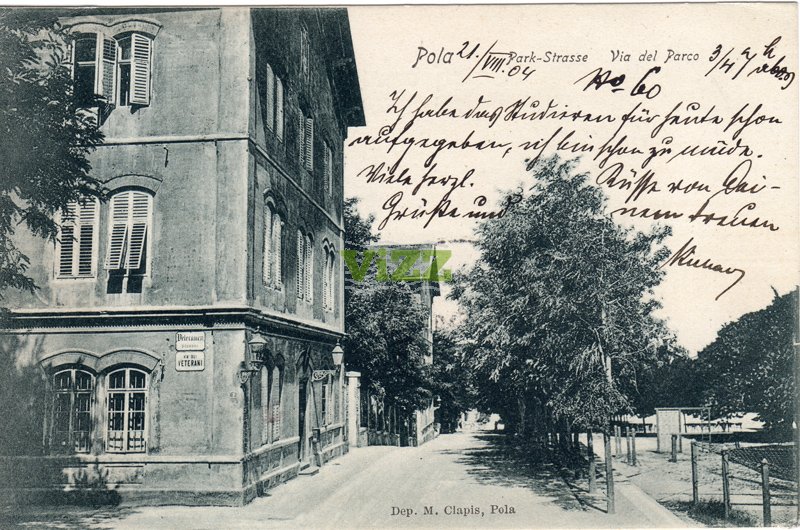 Pola 21/VIII. 04 Park-Strasse Via del Parco
No 60
Ich habe das Studieren für heute schon
aufgegeben, ich bin schon zu müde.
Viele herzl. Küsse von Dei-
Grüße und nem treuen
Richard
vizz.
Veteranen
VIA DEI
VETERANI
Dep. M. Clapis, Pola